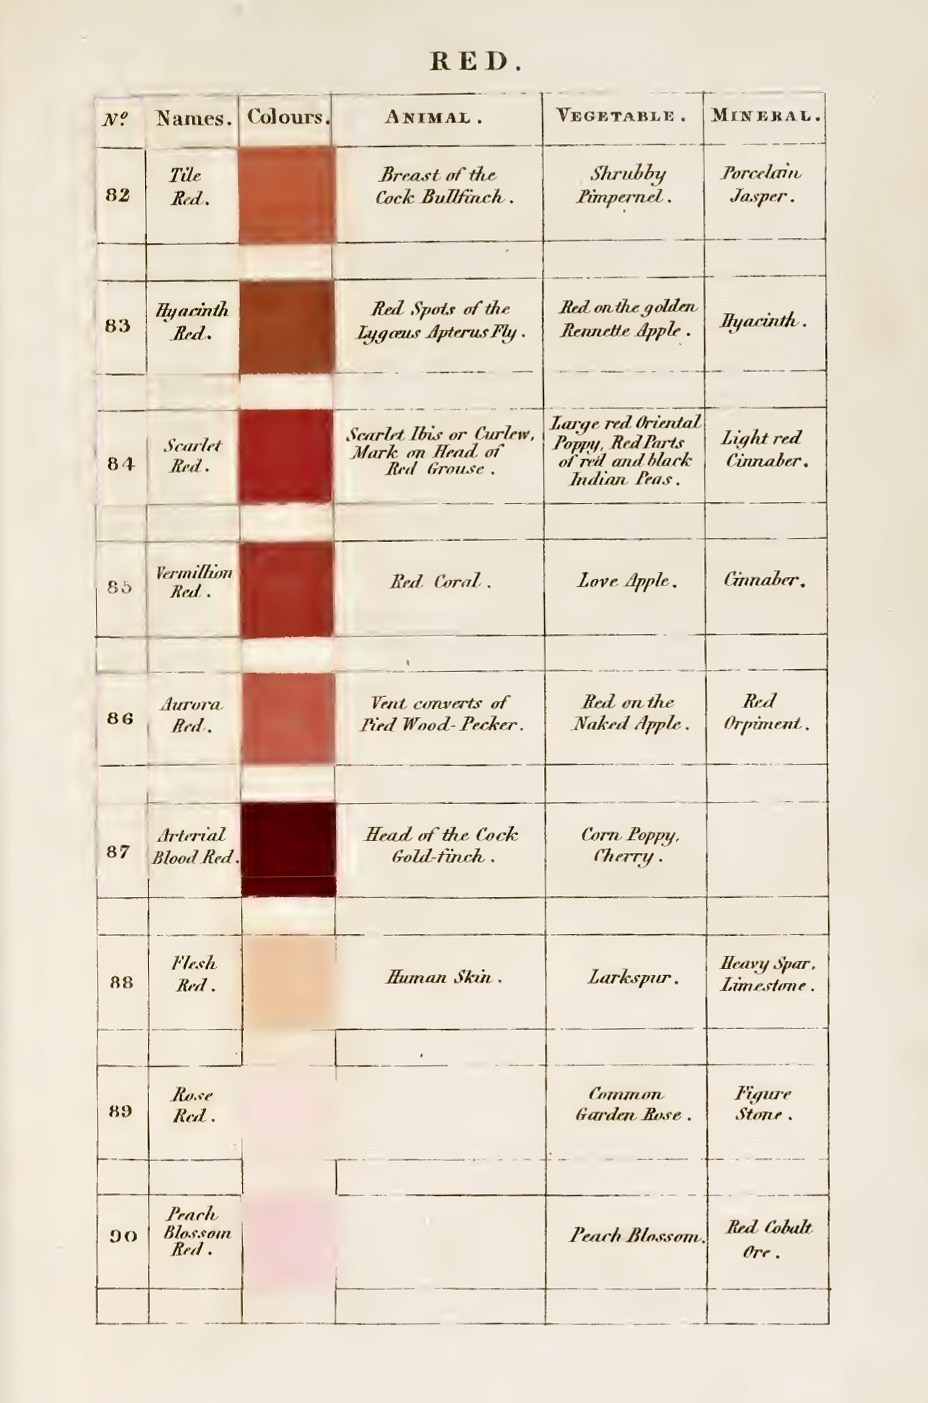 RED.
Nº Names. Colours. ANIMAL. VEGETABLE. MINERAL.
82
Tile
Red.
Breast of the
Cock Bullfinch.
Shrubby
Pimpernel.
Porcelain
Jasper.
83
Hyacinth
Red.
Red Spots of the
Lygæus Apterus Fly.
Red on the golden
Rennette Apple.
Hyacinth.
84
Scarlet
Red.
Scarlet Ibis or Curlew,
Mark on Head of
Red Grouse.
Large red Oriental
Poppy, Red Parts
of red and black
Indian Peas.
Light red
Cinnaber.
85
Vermillion
Red.
Red Coral.
Love Apple.
Cinnaber.
86
Aurora
Red.
Vent converts of
Pied Wood-Pecker.
Red on the
Naked Apple.
Red
Orpiment.
87
Arterial
Blood Red.
Head of the Cock
Gold-finch.
Corn Poppy,
Cherry.
88
Flesh
Red.
Human Skin.
Larkspur.
Heavy Spar.
Limestone.
89
Rose
Red.
Common
Garden Rose.
Figure
Stone.
90
Peach
Blossom
Red.
Peach Blossom.
Red Cobalt
Ore.